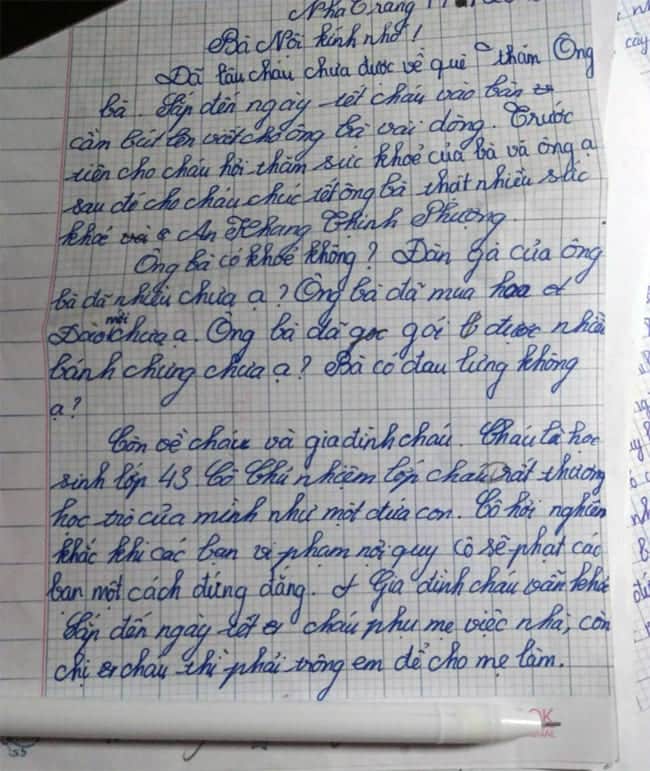 Nha Trang
Bà Nội kính nhớ!
Đã lâu cháu chưa được về quê thăm Ông
bà. Sắp đến ngày tết cháu vào bàn
cầm bút lên viết cho ông bà vài dòng. Trước
tiên cho cháu hỏi thăm sức khoẻ của bà và ông ạ
sau đó cho cháu chúc tết ông bà thật nhiều sức
khoẻ và An Khang Thịnh Phượng
Ông bà có khoẻ không? Đàn gà của ông
bà đã nhiều chưa ạ? Ông bà đã mua hoa
Đào mới chưa ạ. Ông bà đã gọc gói được nhiều
bánh chưng chưa ạ? Bà có đau lưng không
ạ?
Còn về cháu và gia đình cháu. Cháu là học
sinh lớp 43. Cô Chủ nhiệm lớp cháu rất thương
học trò của mình như một đứa con. Cô hơi nghiên
khắc khi các bạn vi phạm nội quy cô sẽ phạt các
bạn một cách đứng đắng. Gia đình cháu vẫn khoẻ
Sắp đến ngày tết cháu phụ mẹ việc nhà, còn
chị cháu thì phải trông em để cho mẹ làm.
OK